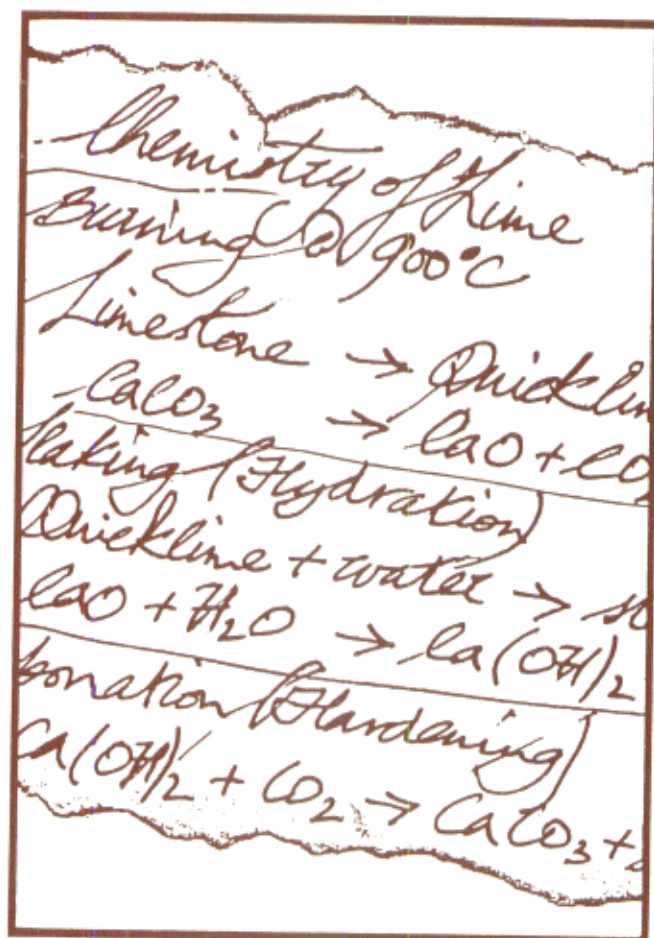 Chemistry of Lime
Burning @ 900°C
Limestone → Quicklim
CaCO₃ → CaO + CO₂
laking (Hydration)
Quicklime + water → sl
CaO + H₂O → Ca(OH)₂
bonation (Hardening)
Ca(OH)₂ + CO₂ → CaCO₃ +